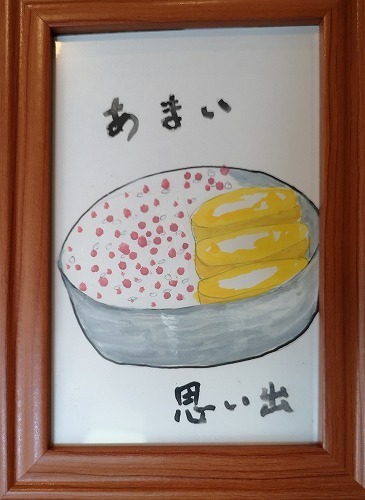 あまい
思い出